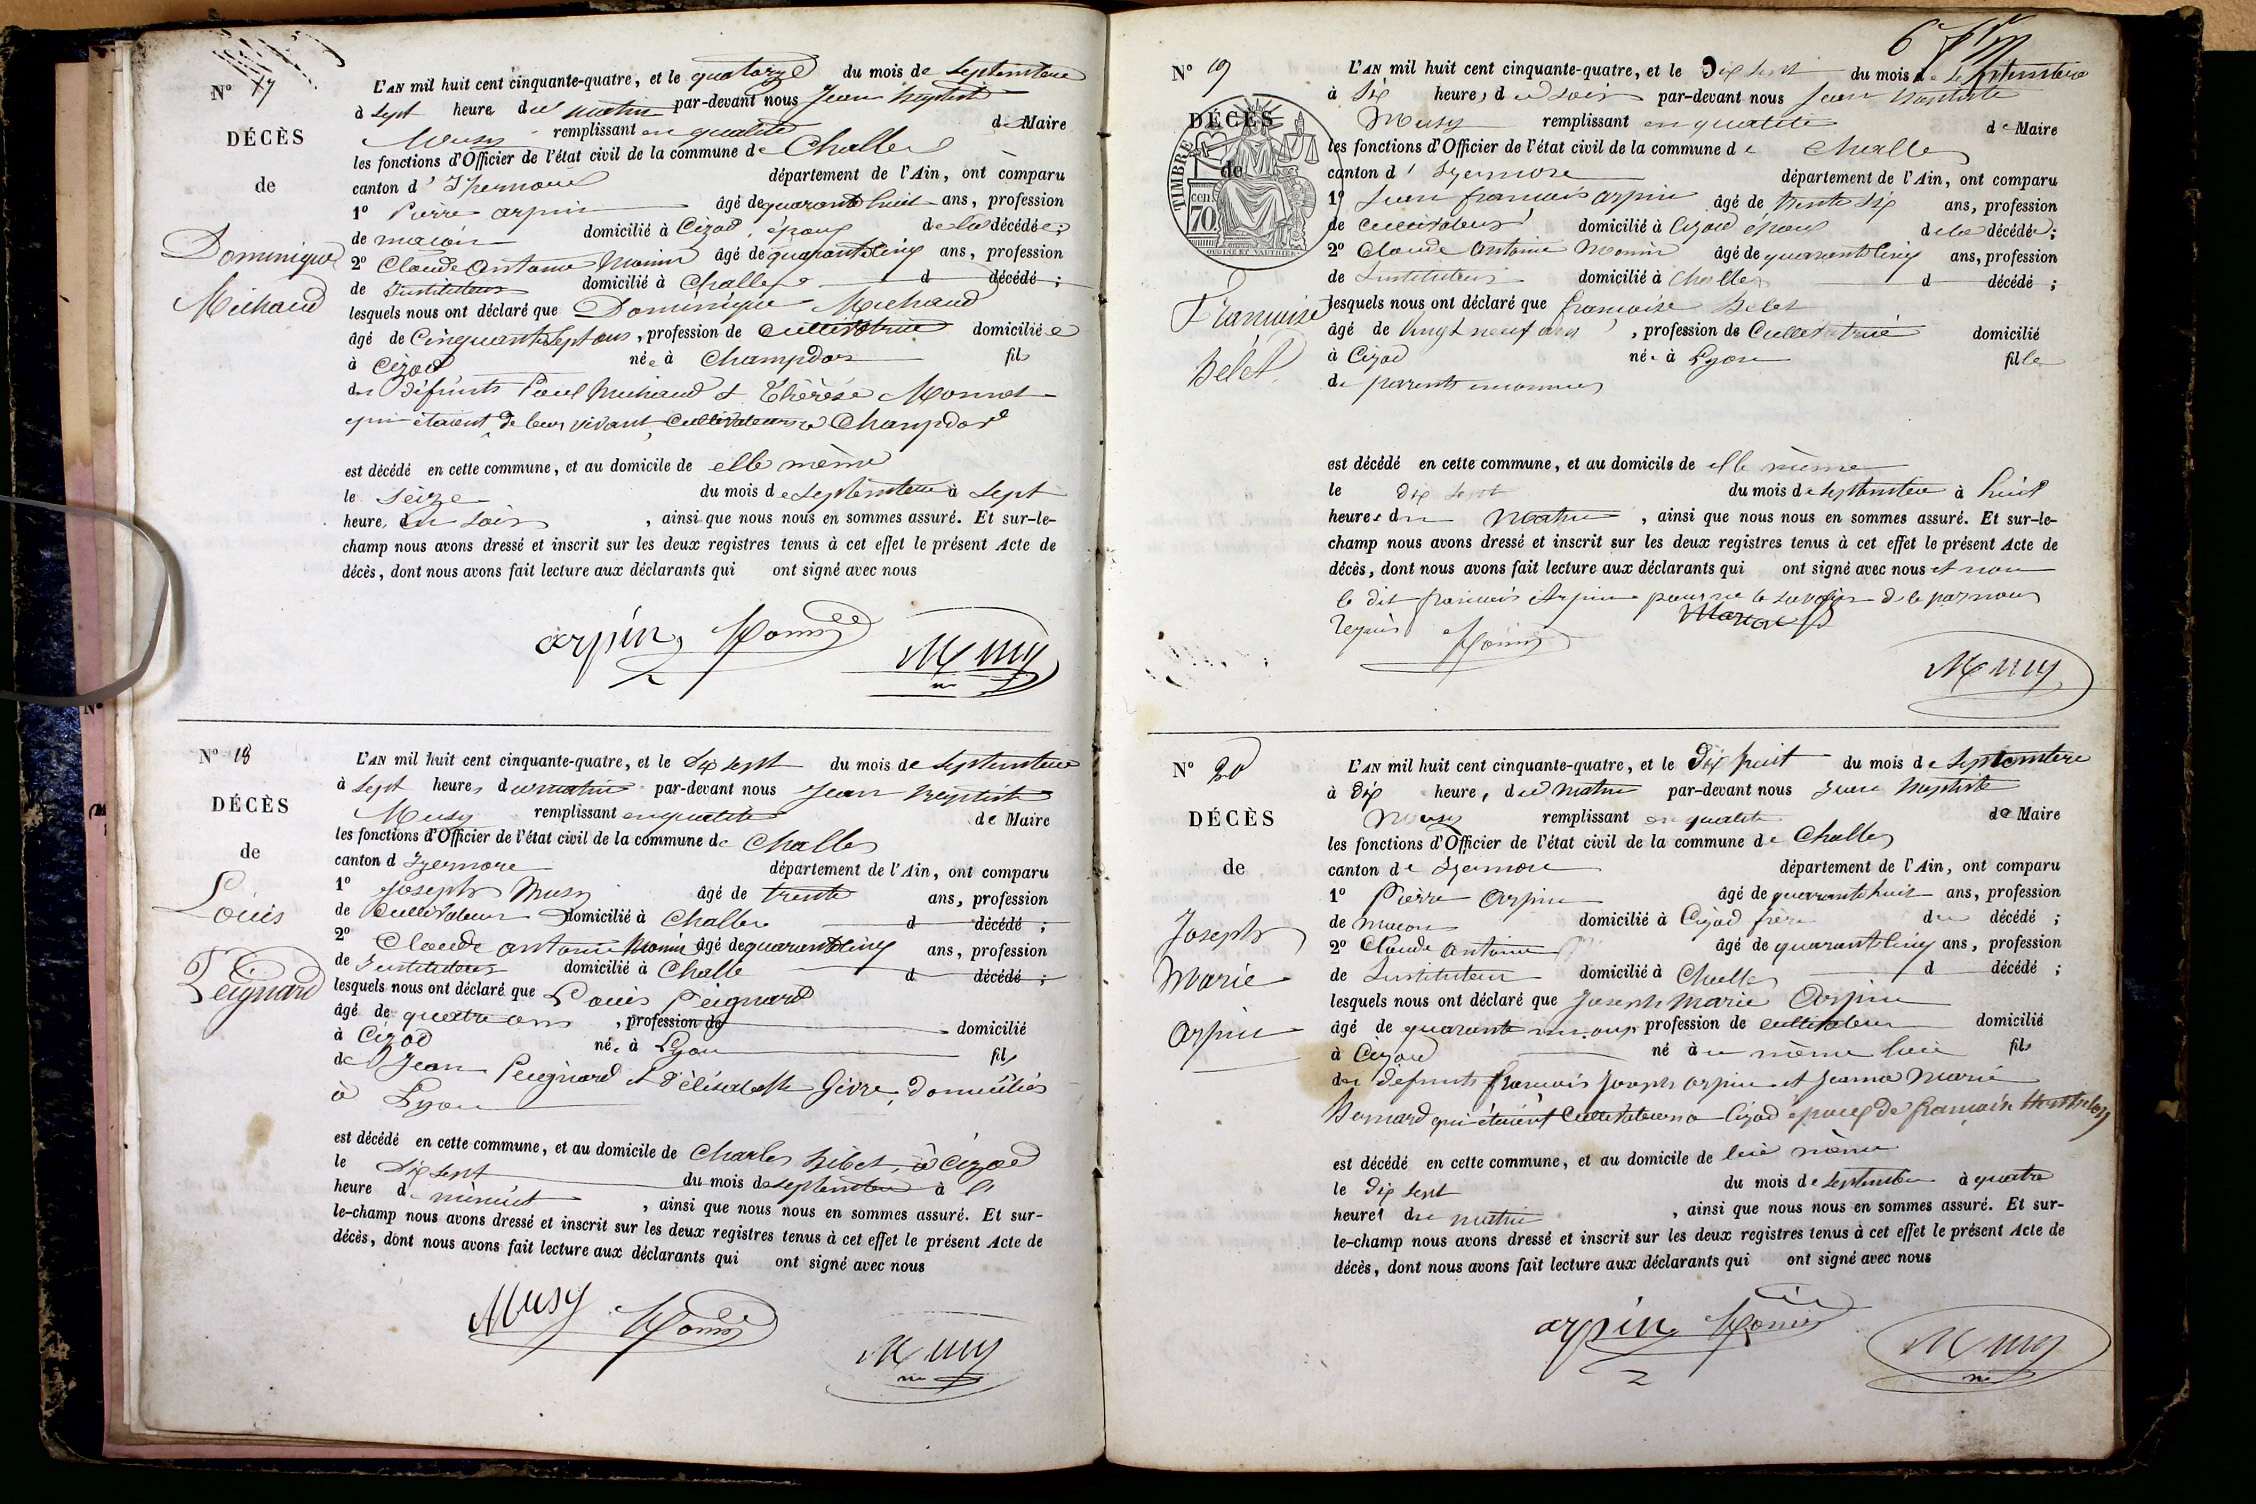 N° 17
DÉCÈS
de
Dominique
Michaud
L'AN mil huit cent cinquante-quatre, et le quatorze du mois de septembre
à sept heure du matin par-devant nous Jean Baptiste
Musy remplissant en qualité de Maire
les fonctions d'Officier de l'état civil de la commune de Challes
canton d' Izernore département de l'Ain, ont comparu
1° Pierre arpin âgé de quarante huit ans, profession
de maçon domicilié à Cizod, époux de la décédée;
2° Claude Antoine Monin âgé de quarante cinq ans, profession
de Instituteur domicilié à Challes d décédé ;
lesquels nous ont déclaré que Dominique Michaud
âgé de Cinquante sept ans, profession de Cultivatrice domiciliée
à Cizod née à Champdor fils
des défunts Paul Michaud et Thérèse Monnet
qui étaient de leur vivant Cultivateurs à Champdor
est décédé en cette commune, et au domicile de elle même
le Seize du mois de septembre à sept
heure du soir, ainsi que nous nous en sommes assuré. Et sur-le-
champ nous avons dressé et inscrit sur les deux registres tenus à cet effet le présent Acte de
décès, dont nous avons fait lecture aux déclarants qui ont signé avec nous
arpin Monin Musy
N° 18
DÉCÈS
de
Louis
Peignard
L'AN mil huit cent cinquante-quatre, et le dix sept du mois de septembre
à sept heures du matin par-devant nous Jean Baptiste
Musy remplissant en qualité de Maire
les fonctions d'Officier de l'état civil de la commune de Challes
canton d Izernore département de l'Ain, ont comparu
1° Joseph Musy âgé de trente ans, profession
de Cultivateur domicilié à Challes d décédé ;
2° Claude antoine Monin âgé de quarante cinq ans, profession
de Instituteur domicilié à Challe d décédé ;
lesquels nous ont déclaré que Louis Peignard
âgé de quatre ans, profession de domicilié
à Cizod né à Lyon fils
de Jean Peignard et d'élisabeth Givre, domiciliés
à Lyon
est décédé en cette commune, et au domicile de Charles Bebet, à Cizod
le dix sept du mois de septembre à
heure de minuit, ainsi que nous nous en sommes assuré. Et sur-
le-champ nous avons dressé et inscrit sur les deux registres tenus à cet effet le présent Acte de
décès, dont nous avons fait lecture aux déclarants qui ont signé avec nous
Musy Monin Musy
6
N° 19
DÉCÈS
de
TIMBRE
cen.
70
Françoise
Bebet
L'AN mil huit cent cinquante-quatre, et le Dix sept du mois de septembre
à Six heures du soir par-devant nous Jean Baptiste
Musy remplissant en qualité de Maire
les fonctions d'Officier de l'état civil de la commune de Challes
canton d' Izernore département de l'Ain, ont comparu
1° Jean francois arpin âgé de trente six ans, profession
de cultivateur domicilié à Cizod époux de la décédée;
2° Claude Antoine Monin âgé de quarante cinq ans, profession
de Instituteur domicilié à Challes d décédé ;
lesquels nous ont déclaré que francoise Bebet
âgé de Vingt neuf ans, profession de Cultivatrice domicilié
à Cizod née à Lyon fille
de parents inconnus
est décédé en cette commune, et au domicile de elle même
le dix sept du mois de septembre à huit
heures du Matin, ainsi que nous nous en sommes assuré. Et sur-le-
champ nous avons dressé et inscrit sur les deux registres tenus à cet effet le présent Acte de
décès, dont nous avons fait lecture aux déclarants qui ont signé avec nous et non
le dit francois Arpin pour ne le savoir de ce par nous
requis Monin
Musy
N° 20
DÉCÈS
de
Joseph
Marie
Arpin
L'AN mil huit cent cinquante-quatre, et le Dix huit du mois de septembre
à dix heure, du Matin par-devant nous Jean Baptiste
Musy remplissant en qualité de Maire
les fonctions d'Officier de l'état civil de la commune de Challes
canton de Izernore département de l'Ain, ont comparu
1° Pierre Arpin âgé de quarante huit ans, profession
de Macon domicilié à Cizod frère du décédé ;
2° Claude Antoine âgé de quarante cinq ans, profession
de Instituteur domicilié à Challes d décédé ;
lesquels nous ont déclaré que Joseph Marie Arpin
âgé de quarante ans profession de cultivateur domicilié
à Cizod né à u même lieu fils
des défunts francois Joseph arpin et Jeanne Marie
Bernard qui étaient Cultivateurs à Cizod époux de francoise
est décédé en cette commune, et au domicile de lui même
le dix sept du mois de septembre à quatre
heures du matin, ainsi que nous nous en sommes assuré. Et sur-
le-champ nous avons dressé et inscrit sur les deux registres tenus à cet effet le présent Acte de
décès, dont nous avons fait lecture aux déclarants qui ont signé avec nous
arpin Monin Musy